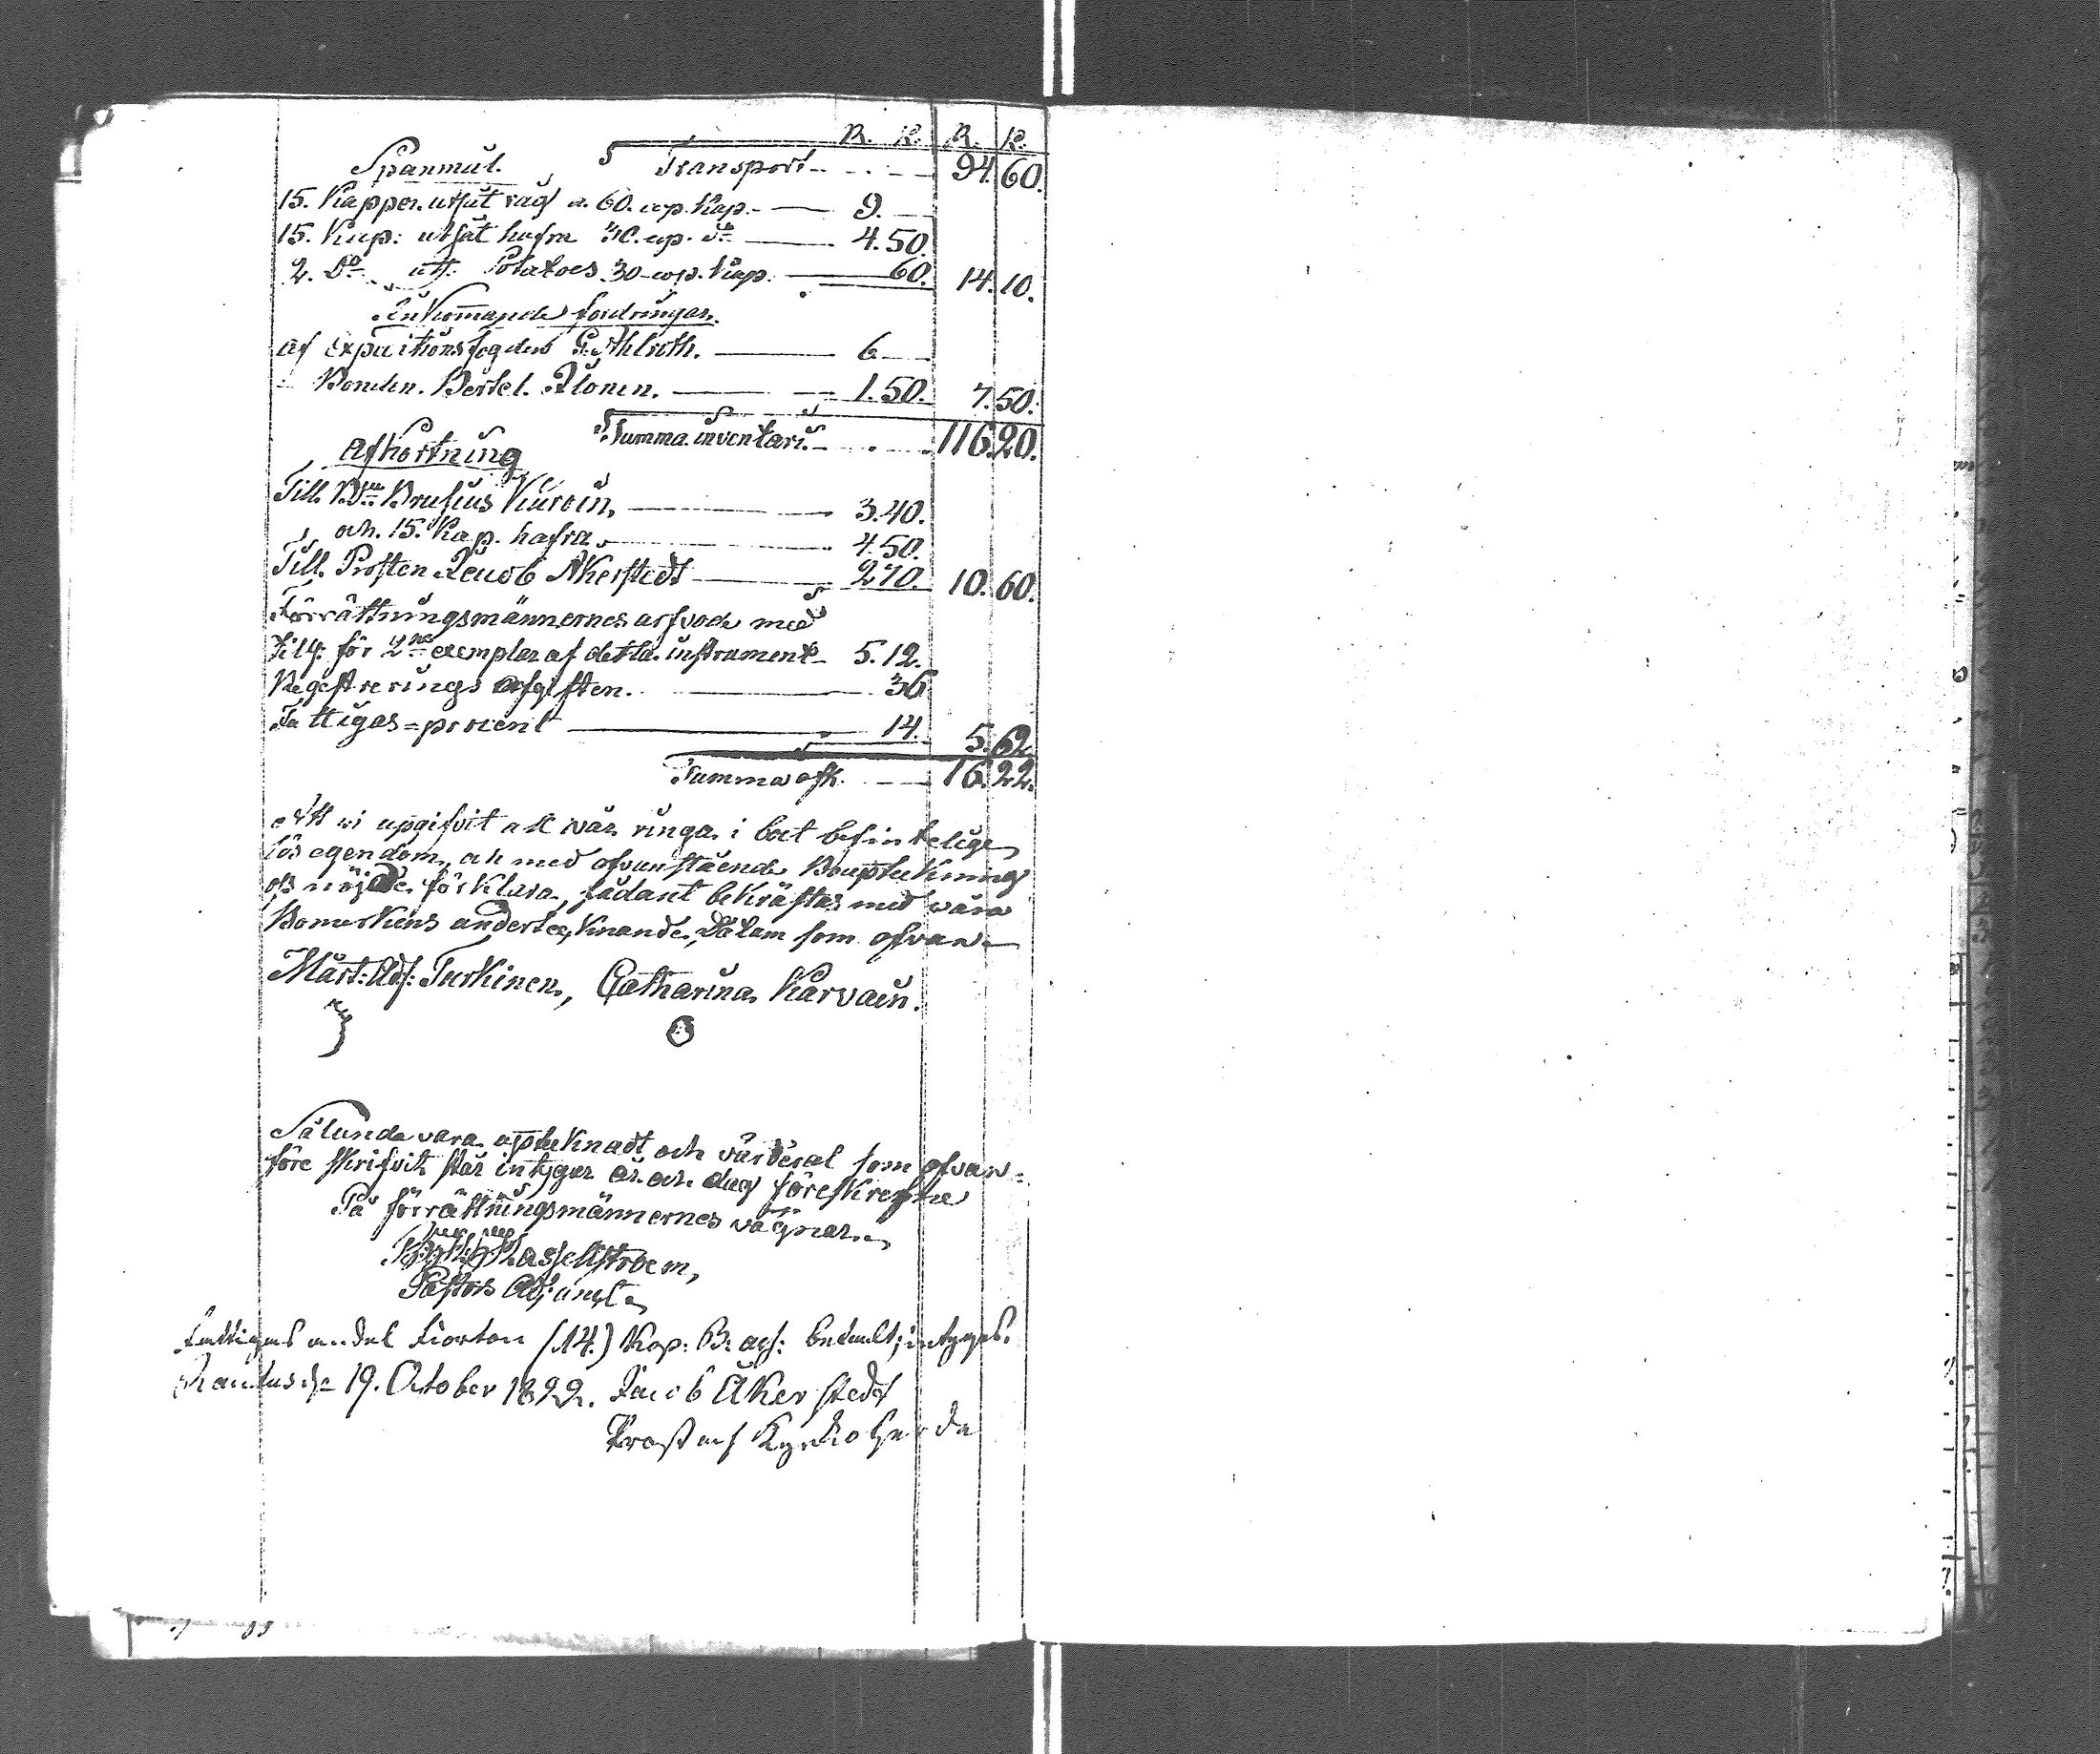 R. K. R. K.
Spanmål. Transport 94. 60.
15. Kappar utsåt råg a. 60. cop. Kap. 9.
15. Kap: utsåt hafra 30. cop. do 4. 50.
2. Do uts: Potatoes 30 cop. Kap. 60. 14. 10.
Inkommande fordringar.
af Expeditionsfogden G. Ahlroth. 6
Bonden Bertel Ilonen. 1. 50. 7. 50.
Summa inventarii 116. 20.
Afkortning
Till Bdn Brusius Kärvän, 3. 40.
och 15. Kap. hafra 4. 50.
Till Prosten Jacob Åkerstedt 2 70. 10. 60.
Förrättningsmännernes arfvode med
tillf: för 2ne exemplar af detta instrument 5. 12.
Registrerings afgiften. 36
Fattigas=procent 14. 5. 62.
Summa afk. 16. 22.
Att vi upgifvit all vår ringa i boet befinteliga
lös egendom, och med ofvanstående Bouptekning
oss nöjde förklara, sådant bekräftas med våra
Bomerkens undertecknande, Datum som ofvan
Mårt: Adf: Turkinen, Catharina Kärvain.
Sålunda vara uptecknadt och värderat som ofvan=
före skrifvit står intygar år och dag föreskrefne
På förrättningsmännernes vägnar
Hasselstroem,
Pastors Adjunct
Fattigas andel Fiorton (14.) Kop: B: ass: betalt; intygas.
Rautus den 19. October 1822. Jacob Åkerstedt
Prost och Kyrkoherde